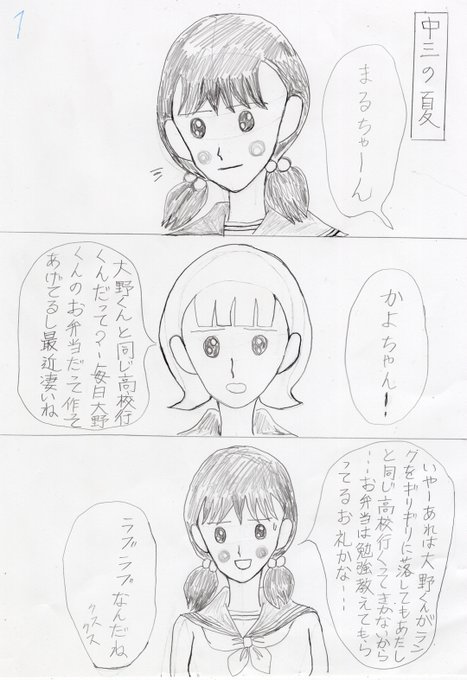 1
中三の夏
まるちゃーん
かよちゃん!
大野くんと同じ高校行
くんだって?ー毎日大野
くんのお弁当だって作って
あげてるし最近凄いね
いやーあれは大野くんがラン
クをギリギリに落としてもあたし
と同じ高校行くってきかないから
…お弁当は勉強教えてもら
ってるお礼かな…
ラブラブなんだね
クスクス